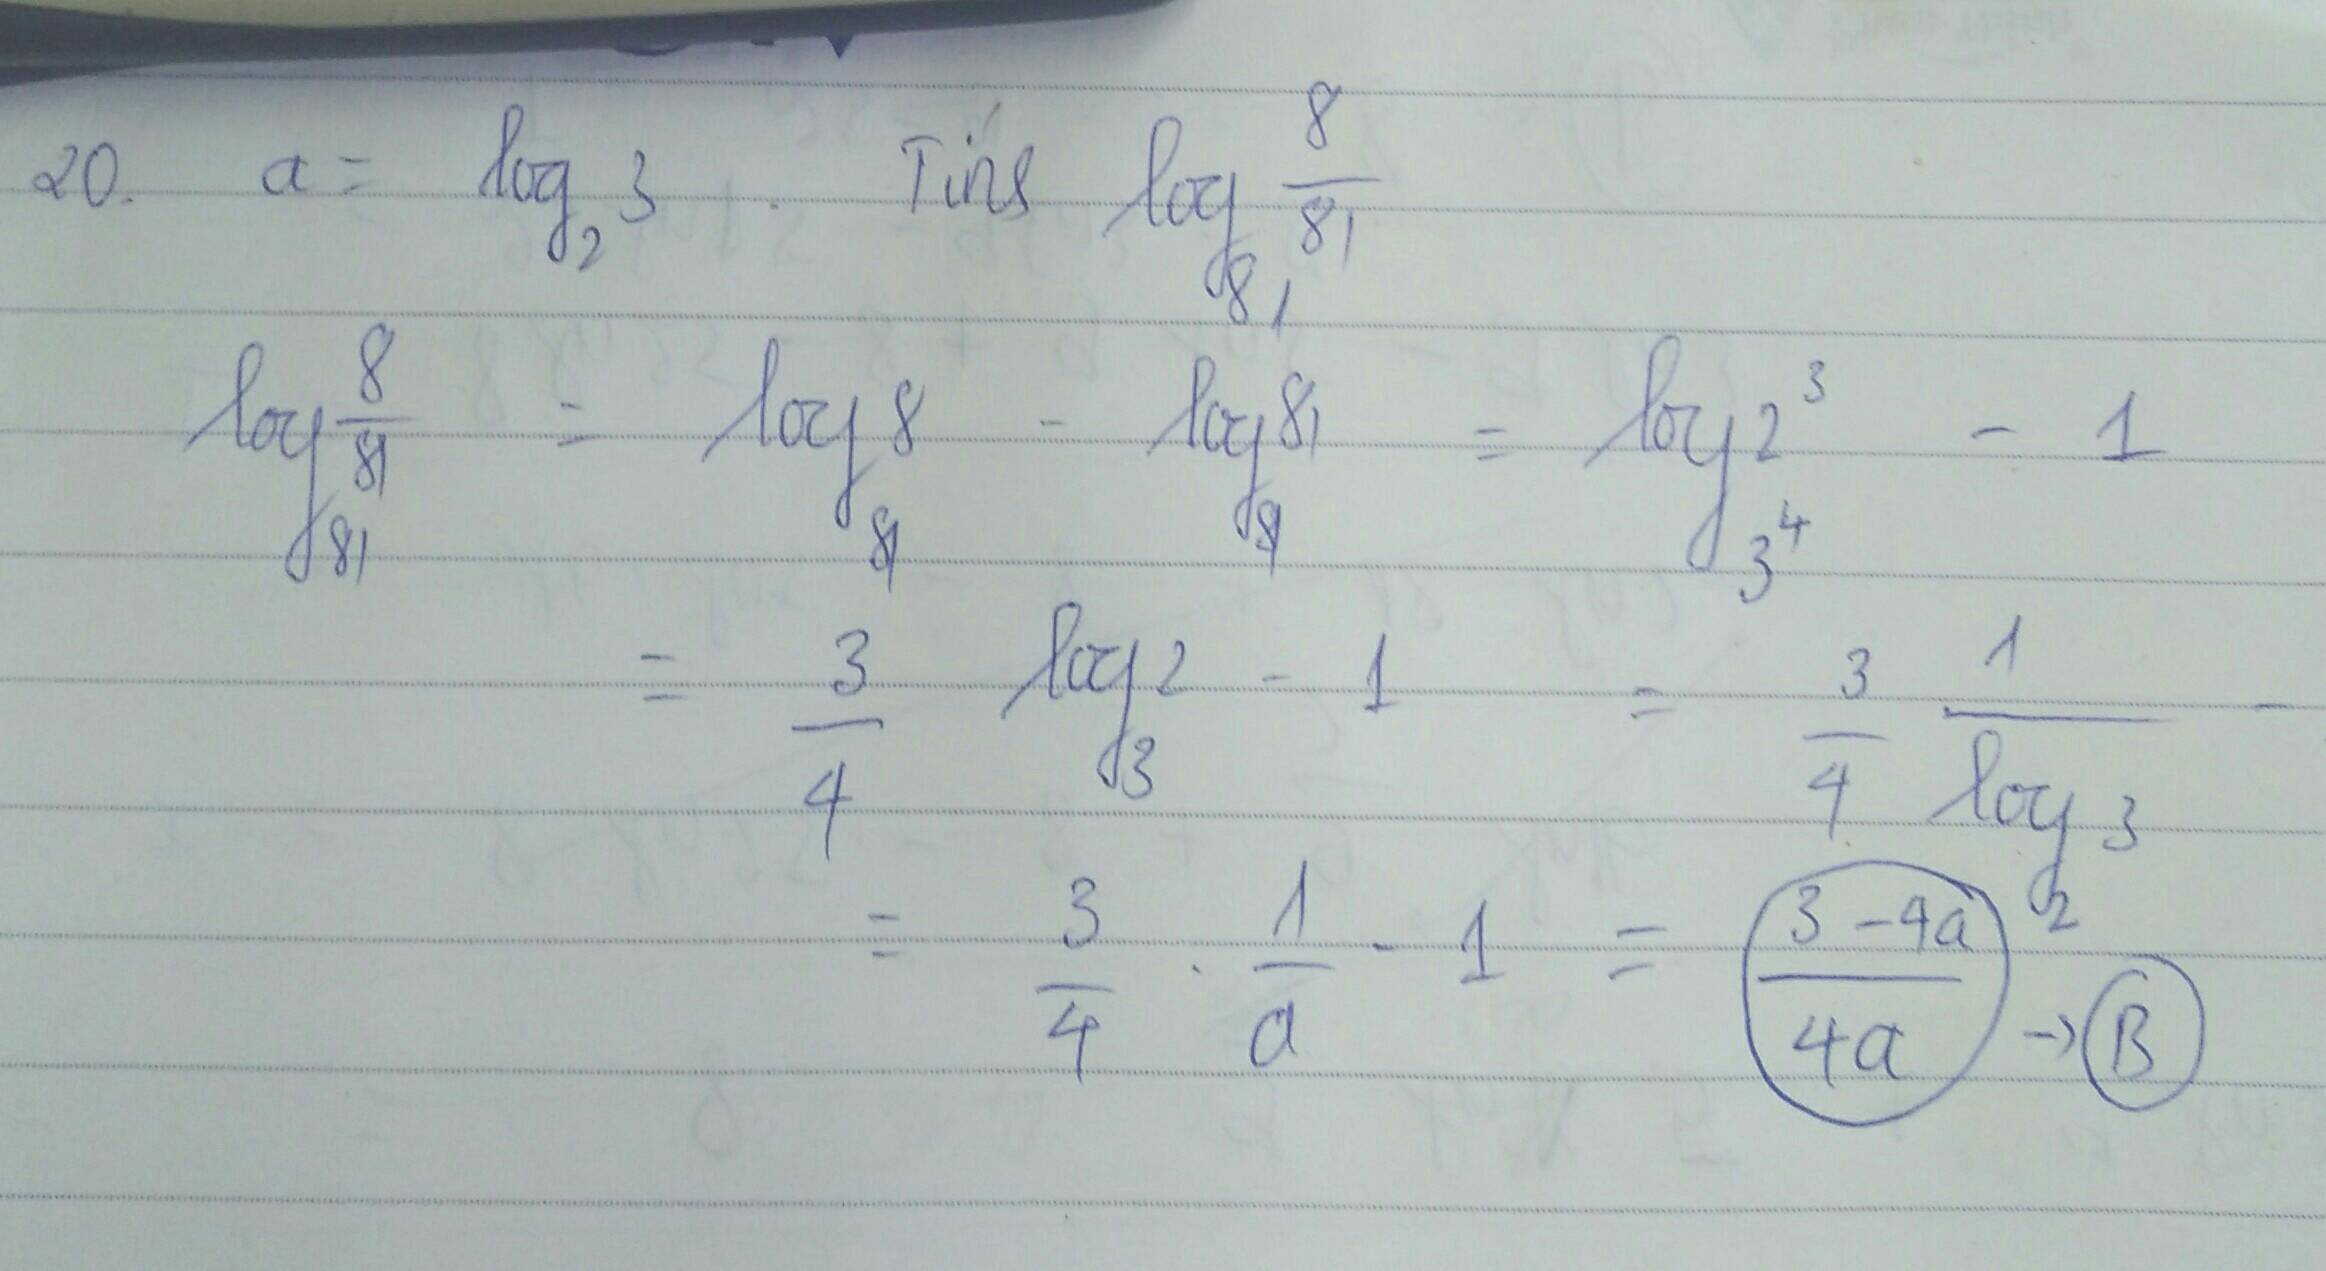 20. a = log₂3 . Tính log₈₁ 8/81
log₈₁ 8/81 = log₈₁ 8 - log₈₁ 81 = log_{3⁴} 2³ - 1
= 3/4 log₃2 - 1 = 3/4 1/log₂3 -
= 3/4 . 1/a - 1 = (3-4a)/4a → B